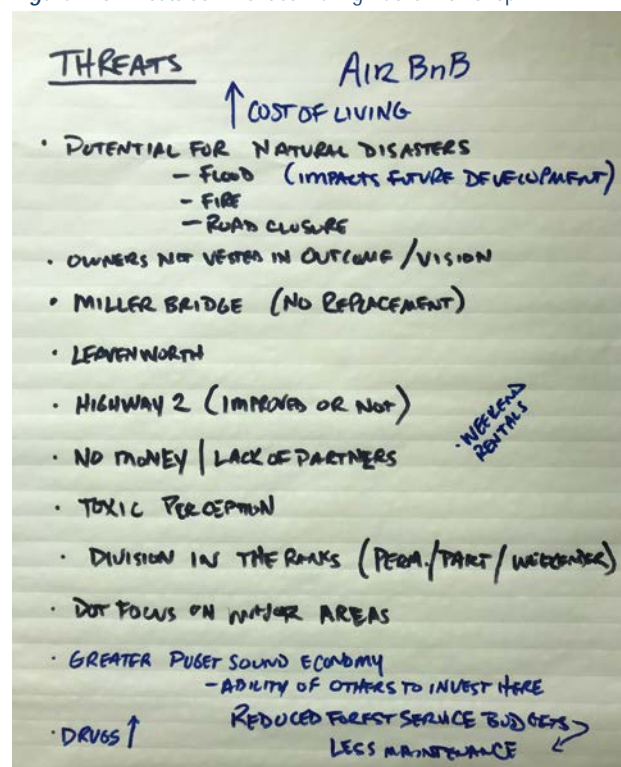 THREATS
AIR BnB
↑ COST OF LIVING
· POTENTIAL FOR NATURAL DISASTERS
– FLOOD (IMPACTS FUTURE DEVELOPMENT)
– FIRE
– ROAD CLOSURE
· OWNERS NOT VESTED IN OUTCOME / VISION
· MILLER BRIDGE (NO REPLACEMENT)
· LEAVENWORTH
· HIGHWAY 2 (IMPROVED OR NOT)
· WEEKEND
RENTALS
· NO MONEY | LACK OF PARTNERS
· TOXIC PERCEPTION
· DIVISION IN THE RANKS (PERM./PART/WEEKENDER)
· DOT FOCUS ON MAJOR AREAS
· GREATER PUGET SOUND ECONOMY
– ABILITY OF OTHERS TO INVEST HERE
· DRUGS ↑
REDUCED FOREST SERVICE BUDGETS
LESS MAINTENANCE